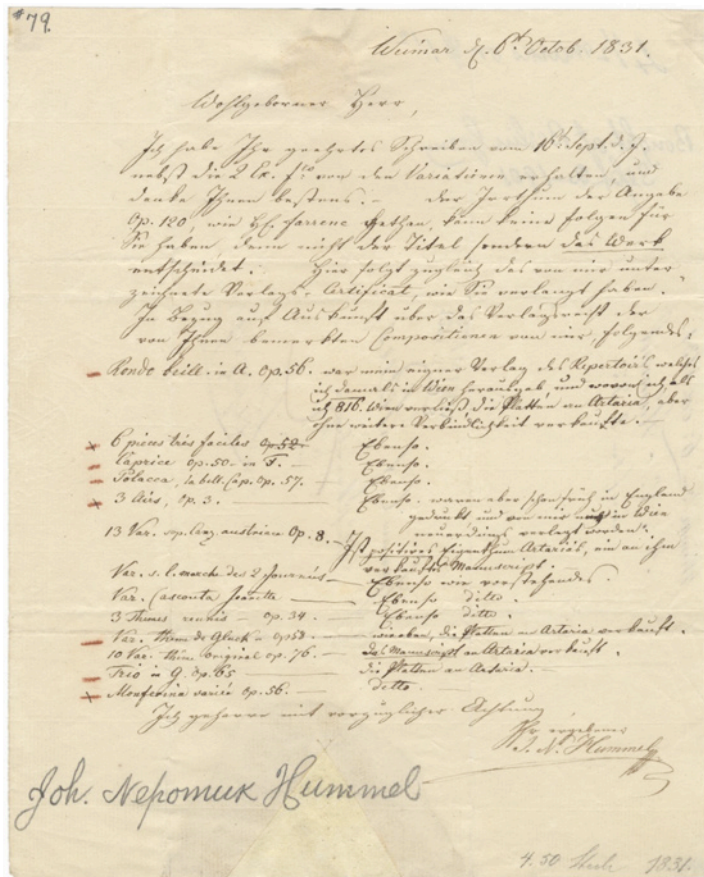 #79.
Weimar d. 6t Octob. 1831.
Wohlgeborner Herr,
Ich habe Ihr geehrtes Schreiben vom 16t Sept. d. J.
nebst die 2 Ex. von den Variationen erhalten, und
danke Ihnen bestens. – Der Irrthum der Angabe
Op. 120, wie H. Farrenc gethan, kann keine Folgen für
Sie haben, denn nicht der Titel sondern das Werk
entscheidet. Hier folgt zugleich das von mir unter-
zeichnete Verlags-Certificat, wie Sie verlangt haben.
In Bezug auf Auskunft über das Verlagsrecht der
von Ihnen bemerkten Compositionen von mir, folgendes:
Rondo brill. in A. Op. 56. war mein eigner Verlag des Repertoirs welches
ich damals in Wien herausgab, und wovon ich als
ich 816. Wien verließ, die Platten an Artaria, aber
ohne weitere Verbindlichkeit verkaufte. –
6 pieces très faciles op. 52 Ebenso.
Caprice op. 50 – in F. – Ebenso.
Polacca, la bella Cap. op. 57. Ebenso.
3 Airs, op. 3. – Ebenso. waren aber schon früh in England
gedruckt und von mir in Wien
neuerdings verlegt worden.
13 Var. austriaca Op. 8. – Ist positives Eigenthum Artaria's, ein an ihn
verkauftes Manuscript.
Var. s. l. marche des 2 Journées – Ebenso wie vorstehendes.
Var. Cascunta Jeanette – Ebenso ditto.
3 Themes – op. 34. – Ebenso ditto.
Var. theme de Gluck – wie oben, die Platten an Artaria verkauft.
10 Var. thème original op. 76. – das Manuscript an Artaria verkauft.
Trio in G. op. 65 – die Platten an Artaria. –
Monferina varié op. 56. – detto.
Ich geharre mit vorzüglicher Achtung
Ihr ergebener
J. N. Hummel
Joh. Nepomuk Hummel
4.50 1831.